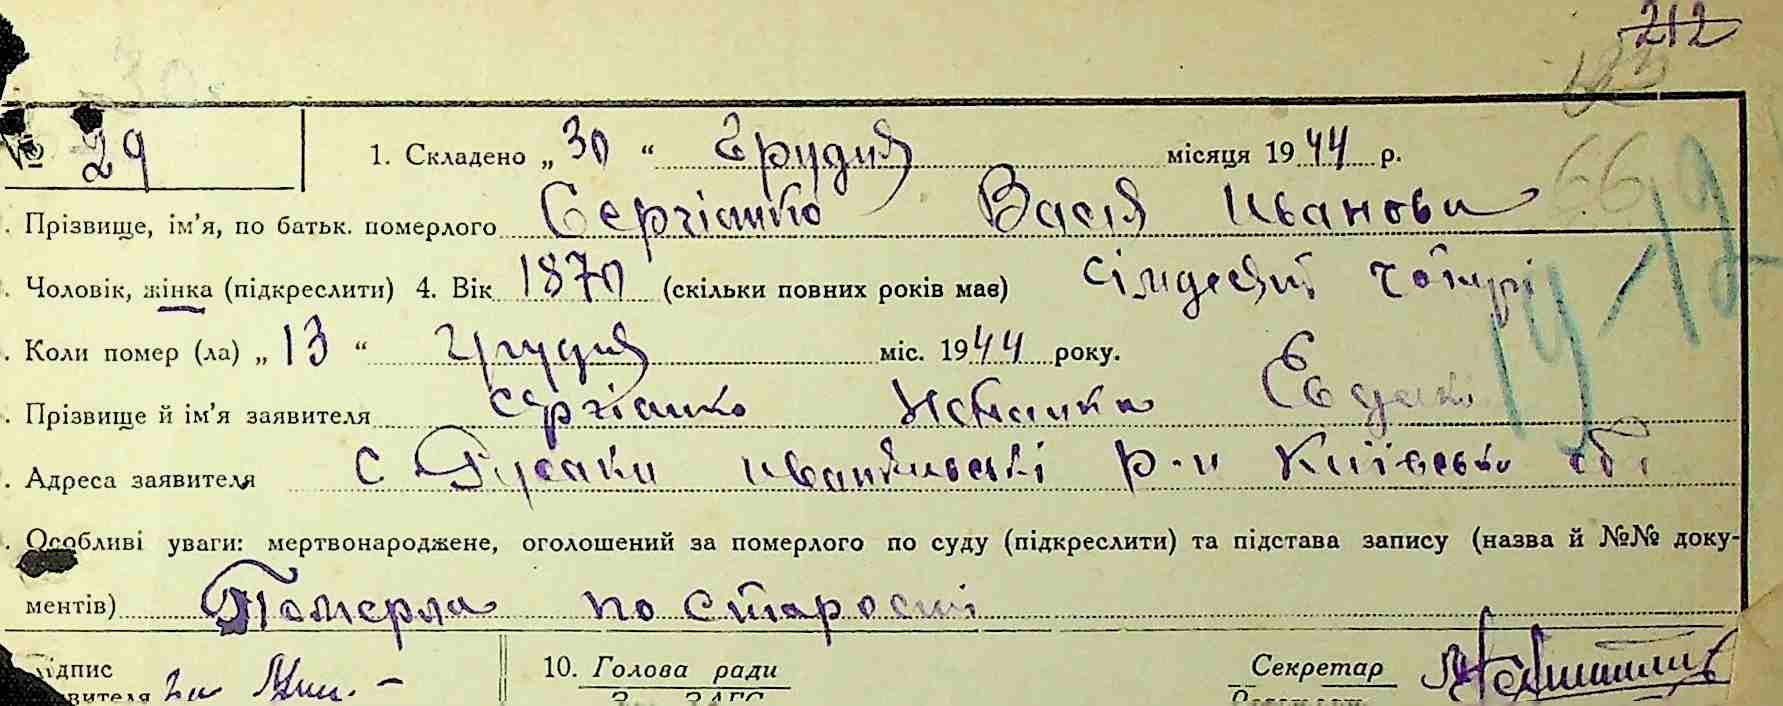 212
123
30.
№ 29 1. Складено „ 30 “ Грудня місяця 1944 р.
66
. Прізвище, ім'я, по батьк. померлого Сергієнко Васія Иванови
. Чоловік, жінка (підкреслити) 4. Вік 1870 (скільки повних років має) сімдесят чотирі
. Коли помер (ла) „ 13 “ грудня міс. 1944 року.
. Прізвище й ім'я заявителя Сергієнко
. Адреса заявителя с Русаки иванкивскі р-н Київсько обл
. Особливі уваги: мертвонароджене, оголошений за померлого по суду (підкреслити) та підстава запису (назва й №№ доку-
ментів) Померла по старості
підпис 10. Голова ради Секретар
явителя За ЗАГС